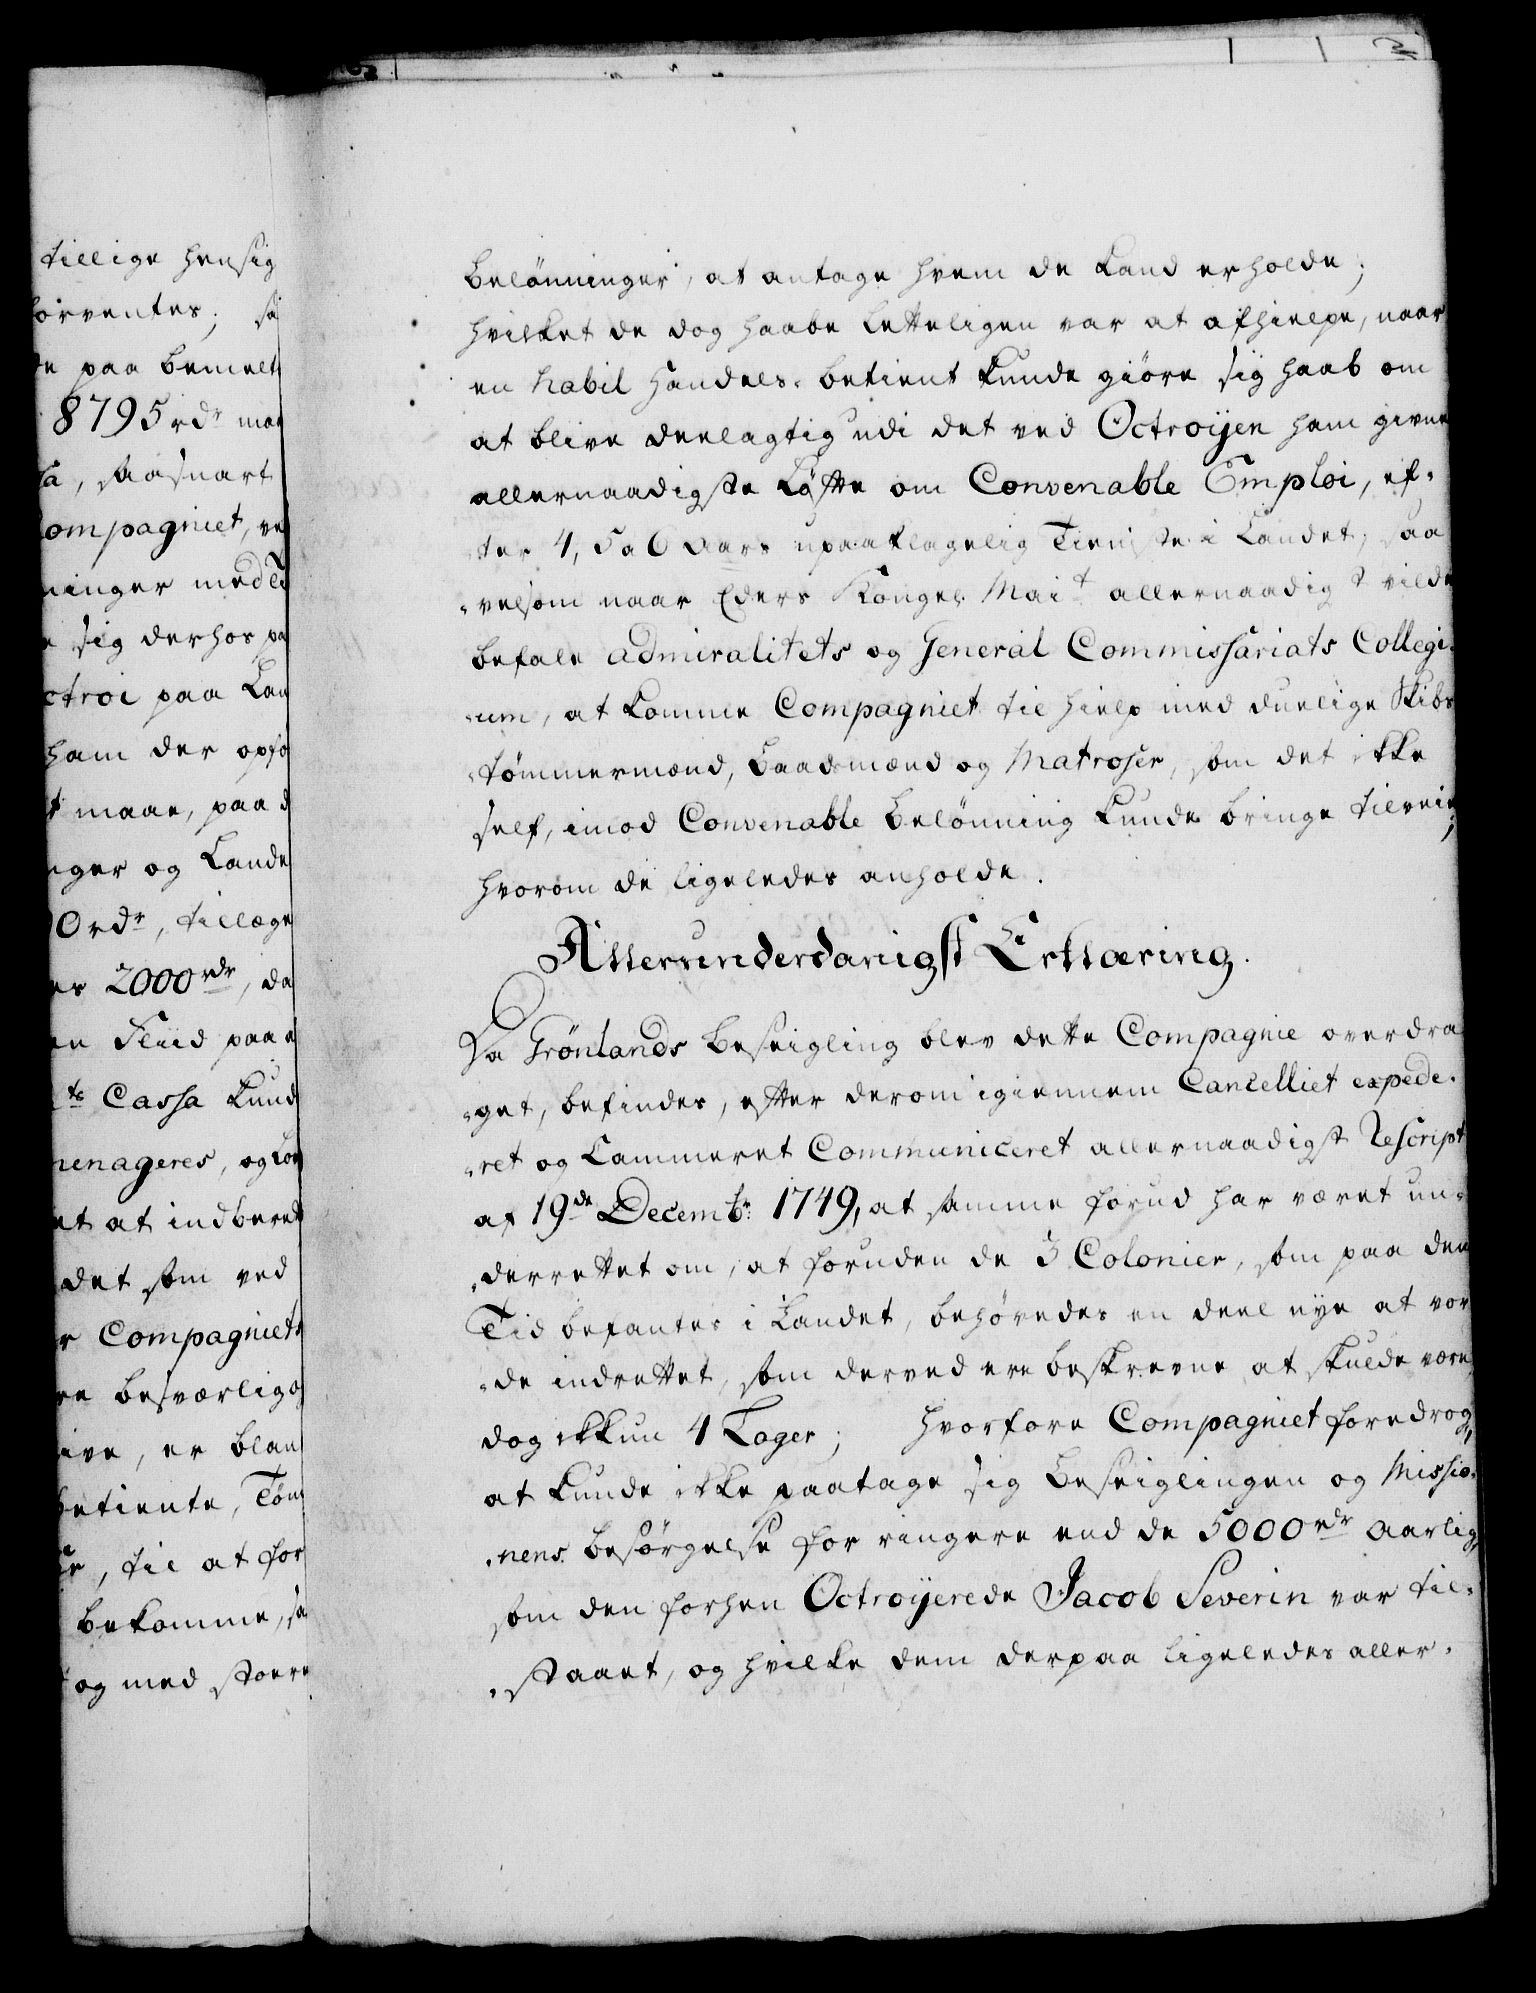 tillige hensig
forventes; sa
de paa bemelt
8795 rdr maa
sa, saasnart
Compagniet, ve
ninger med Ti
e sig derhos pa
ctroi paa Lan
ham der opfo
t maae, paa d
nger og Lande
0 rdr, tillæge
er 2000 rdr, da
en Fluid paa e
ts Cassa kund
menageres, og kon
et at indberet
det som ved
r Compagniets
re besværlig o
ive, er blan
betiente, Töm
de, til at for
bekomme, sa
og med stoere
belönninger, at antage hvem de kand erholde;
hvilket de dog haabe letteligen var at afhielpe, naar
en habil Handels-betient kunde giöre sig haab om
at blive deelagtig udi det ved Octroijen ham givne
allernaadigste Löfte om Convenable Emploi, ef-
ter 4, 5 a 6 Aars upaaklagelig Tieniste i Landet; saa
velsom naar Eders Kongel Mait allernaadigst vilde
befale Admiralitets og General Commissariats Collegi-
um, at komme Compagniet til hielp med duelige Skibs
tömmermænd, Baadsmænd og Matroser, som det ikke
self, imod Convenable belönning kunde bringe tilveie;
hvorom de ligeledes anholde.
Allerunderdanigst Erklæring.
Da Grönlands Beseigling blev dette Compagnie overdra
get, befindes, efter derom igiennem Cancelliet expede-
ret og Cammeret Communiceret allernaadigst Rescript
af 19de Decembr: 1749, at samme forud har været un-
derrettet om, at foruden de 3 Colonier, som paa den
Tid befantes i Landet, behövedes en deel nye at vor
de indrettet, som derved ere beskrevne at skulde være,
dog ikkun 4 Loger; hvorfore Compagniet foredrog,
at kunde ikke paatage sig Beseiglingen og Missio-
nens besörgelse for ringere end de 5000 rdr Aarlig,
som den forhen Octroijerede Jacob Severin var til-
staaet, og hvilke dem derpaa ligeledes aller-